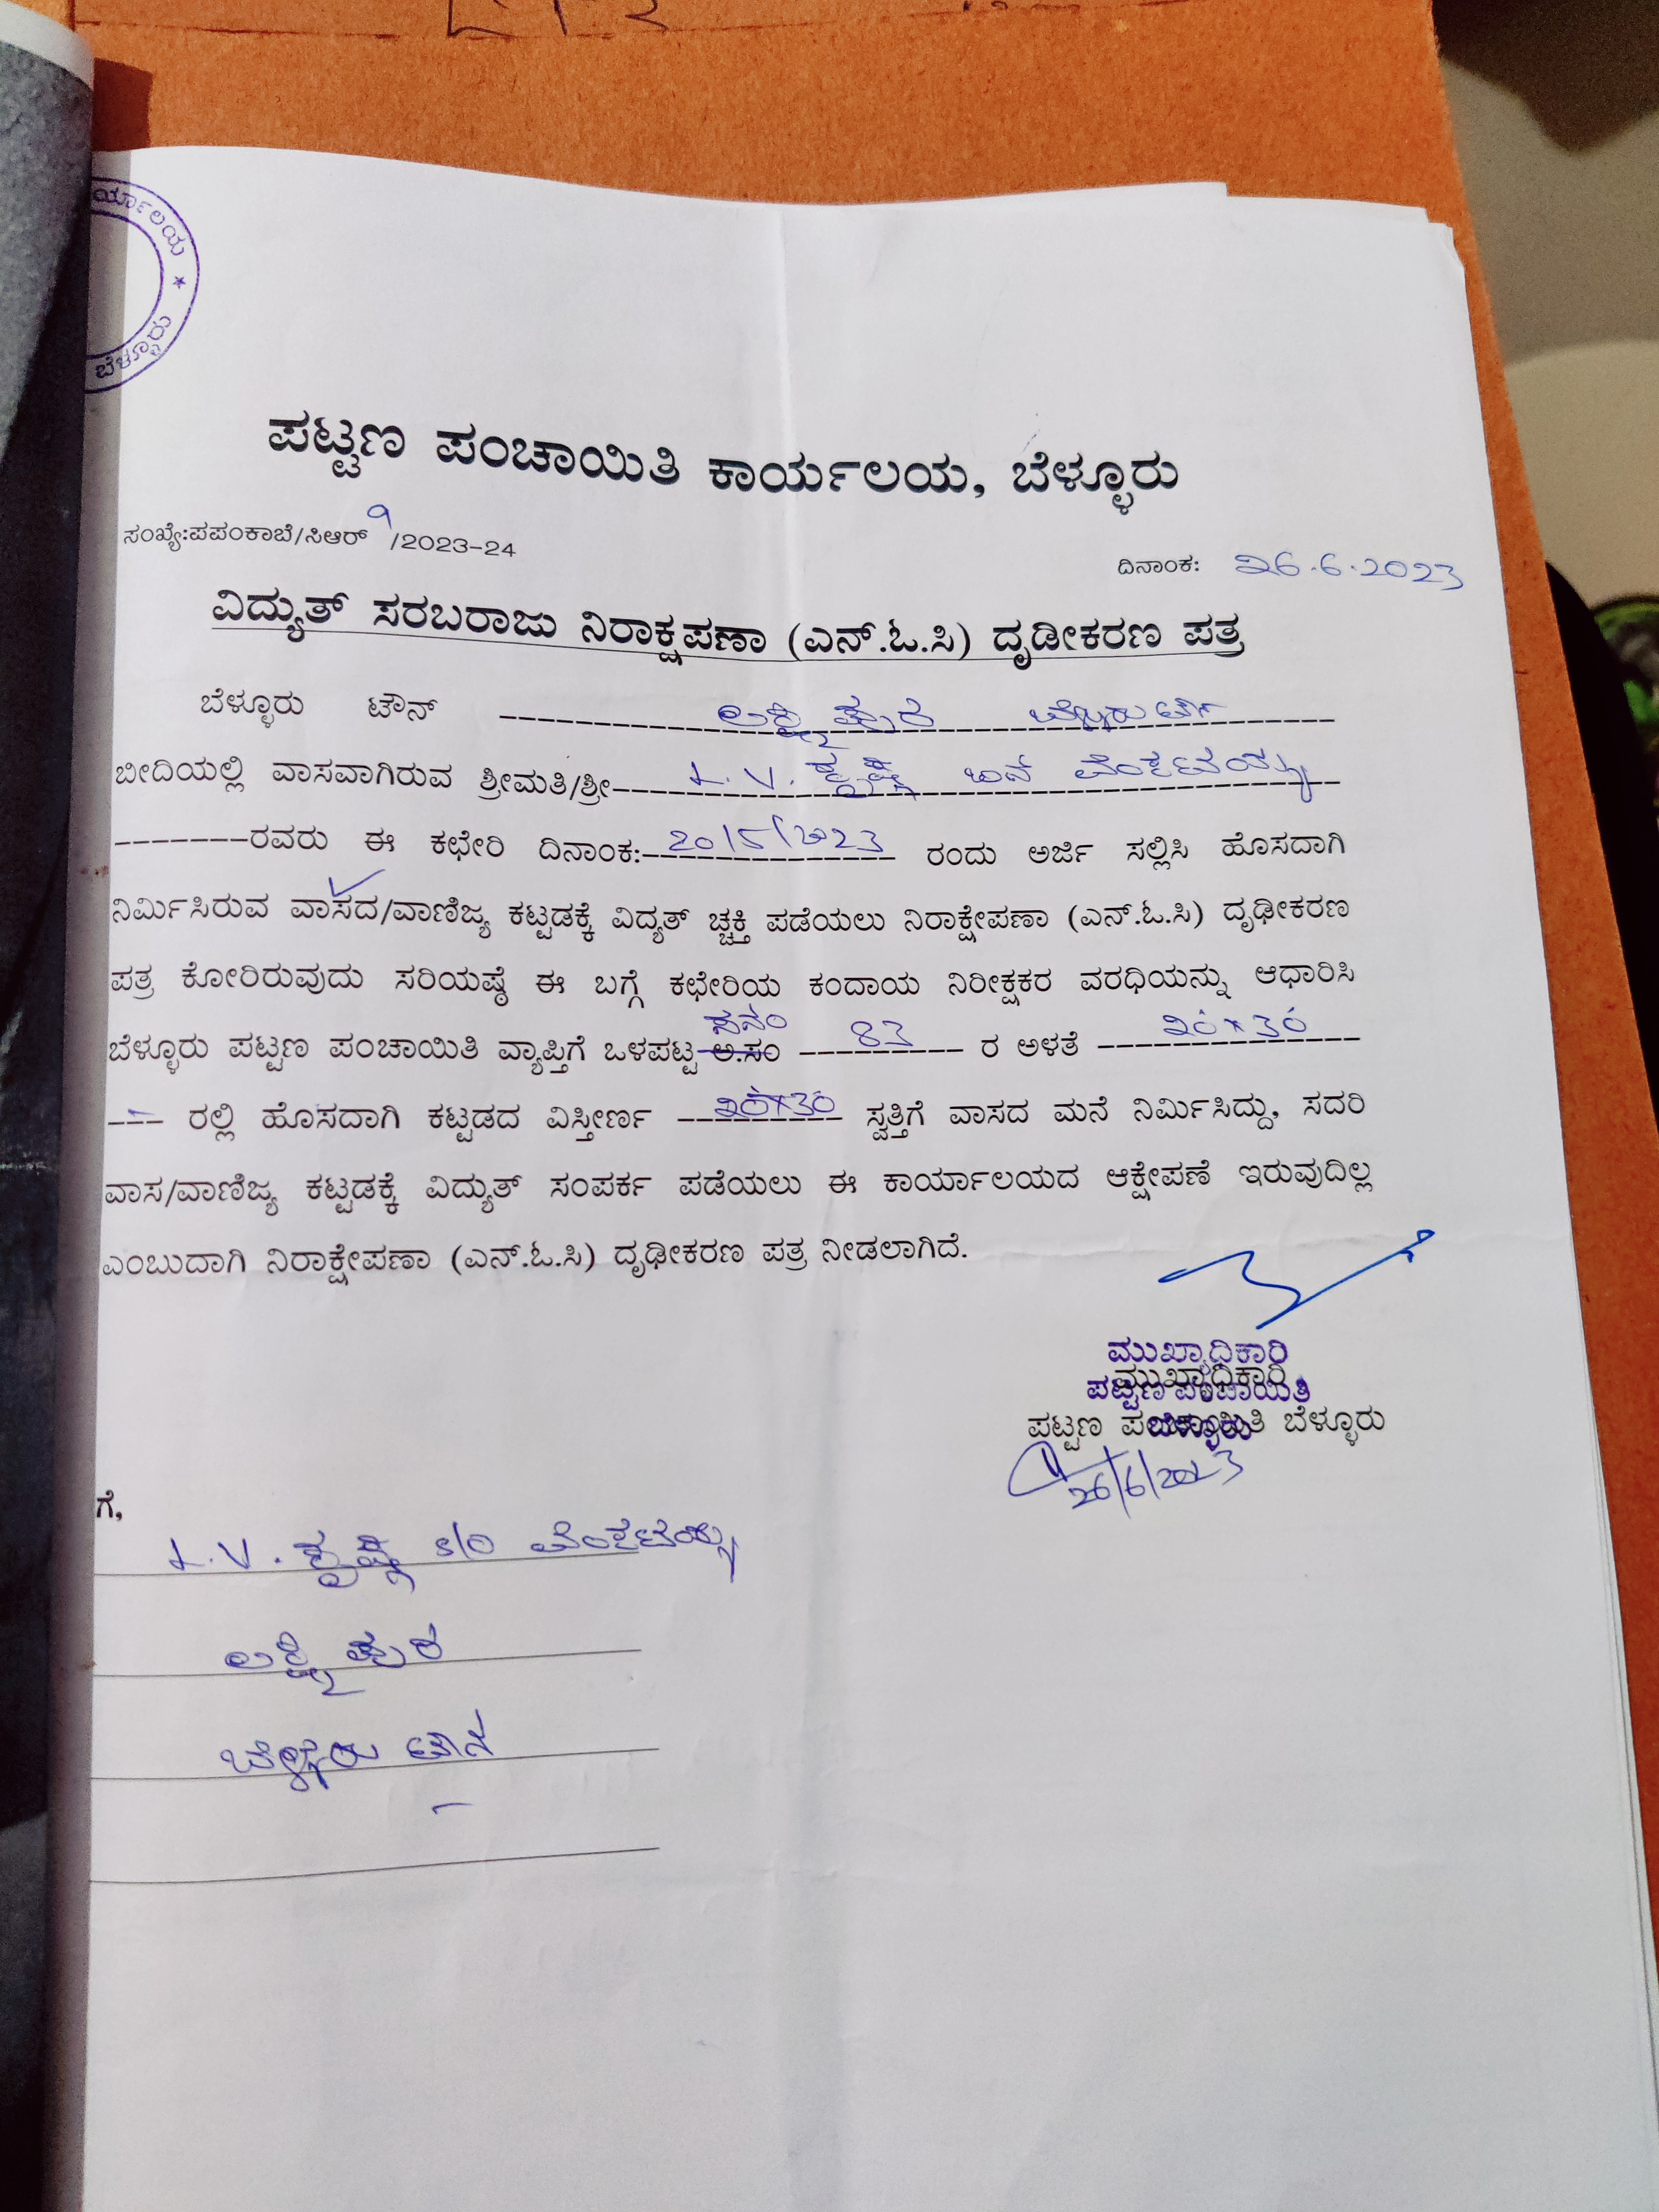 ರ್ಯಾಲಯ * ಬೆಳ್ಳೂರು
ಪಟ್ಟಣ ಪಂಚಾಯಿತಿ ಕಾರ್ಯಲಯ, ಬೆಳ್ಳೂರು
ಸಂಖ್ಯೆ:ಪಪಂಕಾಬೆ/ಸಿಆರ್ 9/2023-24
ದಿನಾಂಕ: 26.6.2023
ವಿದ್ಯುತ್ ಸರಬರಾಜು ನಿರಾಕ್ಷಪಣಾ (ಎನ್.ಓ.ಸಿ) ದೃಡೀಕರಣ ಪತ್ರ
ಬೆಳ್ಳೂರು ಟೌನ್ ಲಕ್ಷ್ಮೀಪುರ ಬೆಳ್ಳೂರು ಟೌನ್
ಬೀದಿಯಲ್ಲಿ ವಾಸವಾಗಿರುವ ಶ್ರೀಮತಿ/ಶ್ರೀ L.V. ಕೃಷ್ಣ ಬಿನ್ ವೆಂಕಟಯ್ಯ
ರವರು ಈ ಕಛೇರಿ ದಿನಾಂಕ: 20/5/2023 ರಂದು ಅರ್ಜಿ ಸಲ್ಲಿಸಿ ಹೊಸದಾಗಿ
ನಿರ್ಮಿಸಿರುವ ವಾಸದ/ವಾಣಿಜ್ಯ ಕಟ್ಟಡಕ್ಕೆ ವಿದ್ಯತ್ ಚ್ಚಕ್ತಿ ಪಡೆಯಲು ನಿರಾಕ್ಷೇಪಣಾ (ಎನ್.ಓ.ಸಿ) ದೃಢೀಕರಣ
ಪತ್ರ ಕೋರಿರುವುದು ಸರಿಯಷ್ಠೆ ಈ ಬಗ್ಗೆ ಕಛೇರಿಯ ಕಂದಾಯ ನಿರೀಕ್ಷಕರ ವರಧಿಯನ್ನು ಆಧಾರಿಸಿ
ಬೆಳ್ಳೂರು ಪಟ್ಟಣ ಪಂಚಾಯಿತಿ ವ್ಯಾಪ್ತಿಗೆ ಒಳಪಟ್ಟ ಅ.ಸಂ 83 ರ ಅಳತೆ 20×30
ರಲ್ಲಿ ಹೊಸದಾಗಿ ಕಟ್ಟಡದ ವಿಸ್ತೀರ್ಣ 20×30 ಸ್ವತ್ತಿಗೆ ವಾಸದ ಮನೆ ನಿರ್ಮಿಸಿದ್ದು, ಸದರಿ
ವಾಸ/ವಾಣಿಜ್ಯ ಕಟ್ಟಡಕ್ಕೆ ವಿದ್ಯುತ್ ಸಂಪರ್ಕ ಪಡೆಯಲು ಈ ಕಾರ್ಯಾಲಯದ ಆಕ್ಷೇಪಣೆ ಇರುವುದಿಲ್ಲ
ಎಂಬುದಾಗಿ ನಿರಾಕ್ಷೇಪಣಾ (ಎನ್.ಓ.ಸಿ) ದೃಢೀಕರಣ ಪತ್ರ ನೀಡಲಾಗಿದೆ.
ಮುಖ್ಯಾಧಿಕಾರಿ
ಮುಖ್ಯಾಧಿಕಾರಿ
ಪಟ್ಟಣ ಪಂಚಾಯಿತಿ
ಪಟ್ಟಣ ಪಂಚಾಯಿತಿ ಬೆಳ್ಳೂರು
ಬೆಳ್ಳೂರು
26/6/2023
ಗೆ,
L.V. ಕೃಷ್ಣ s/o ವೆಂಕಟಯ್ಯ
ಲಕ್ಷ್ಮೀಪುರ
ಬೆಳ್ಳೂರು ಟೌನ್